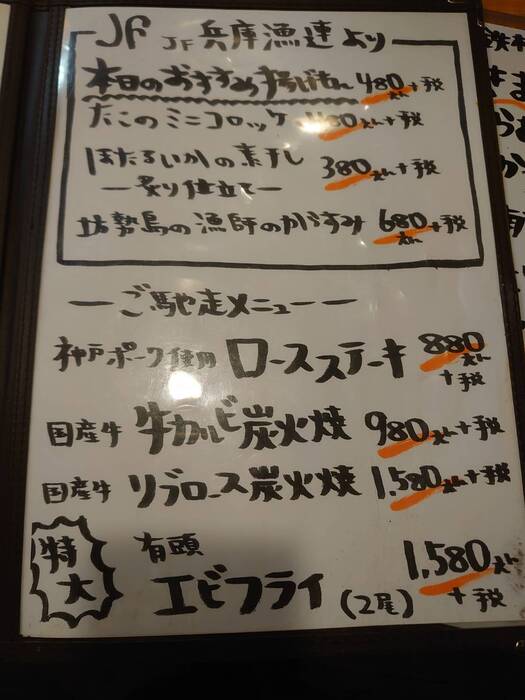 JF JF兵庫漁連より
本日のおすすめ揚げもん 480えん+税
たこのミニコロッケ 80えん+税
ほたるいかの素干し 380えん+税
ー炙り仕立てー
坊勢島の漁師のからすみ 680えん+税
ーご馳走メニューー
神戸ポーク使用 ロースステーキ 880えん+税
国産牛 牛カルビ炭火焼 980えん+税
国産牛 リブロース炭火焼 1,580えん+税
特大 有頭 エビフライ (2尾) 1,580えん+税